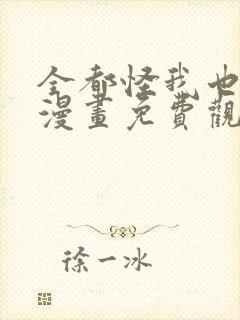 全都怪我也
漫畫免費觀
徐一冰